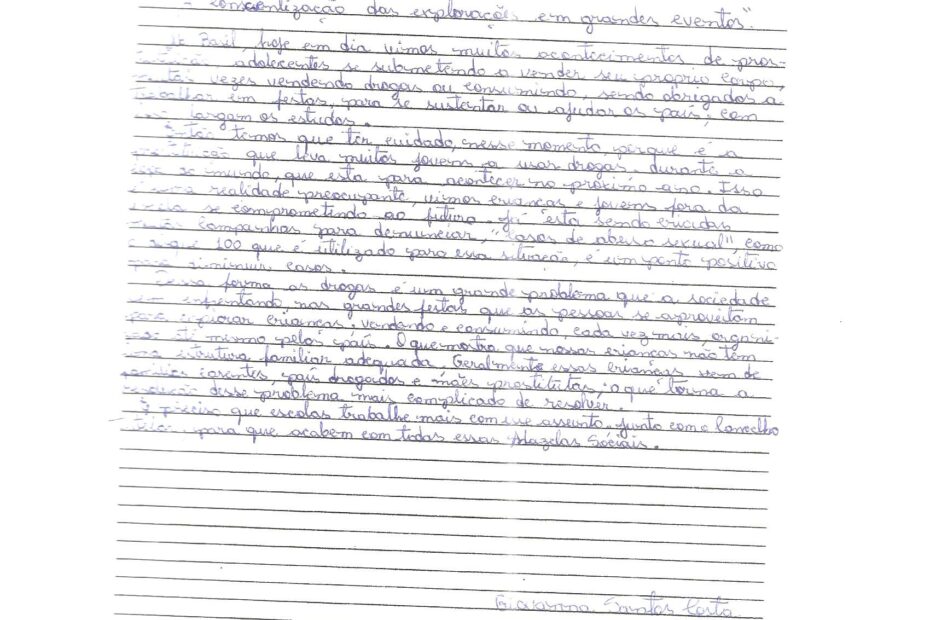 "conscientização das explorações em grandes eventos".
Basil, hoje em dia vimos muitos acontecimentos de pros-
adolecentes se submetendo a vender seu próprio corpo,
vezes vendendo drogas ou consumindo, sendo obrigados a
em festas, para se sustentar ou ajudar os pais, com
largam os estudos.
temos que ter, cuidado, nesse momento, porque é a
que leva muitos jovens a usar drogas durante o
mundo, que esta para acontecer no próximo ano. Isso
realidade preocupante, vimos crianças e jovens fora da
se comprometendo ao futuro. Já esta sendo criadas
campanhas para denunciar, "casos de abuso sexual", como
100 que é utilizado para essa situação, é um ponto positivo
casos.
forma as drogas é um grande problema que a sociedade
enfrentando, nas grandes festas que as pessoas se aproveitam
crianças, vendendo e consumindo, cada vez mais,
mesmo, pelos pais. O que mostra que nossas crianças não tem
estrutura familiar adequada. Geralmente essas crianças vem de
carentes, pais drogados e mães prostitutas, o que torna a
desse problema mais complicado de resolver.
É preciso que escolas trabalhe mais com isse assunto. Junto com o Conselho
para que acabem com todas essas Mazelas Sociais.
Giovanna Santos Costa